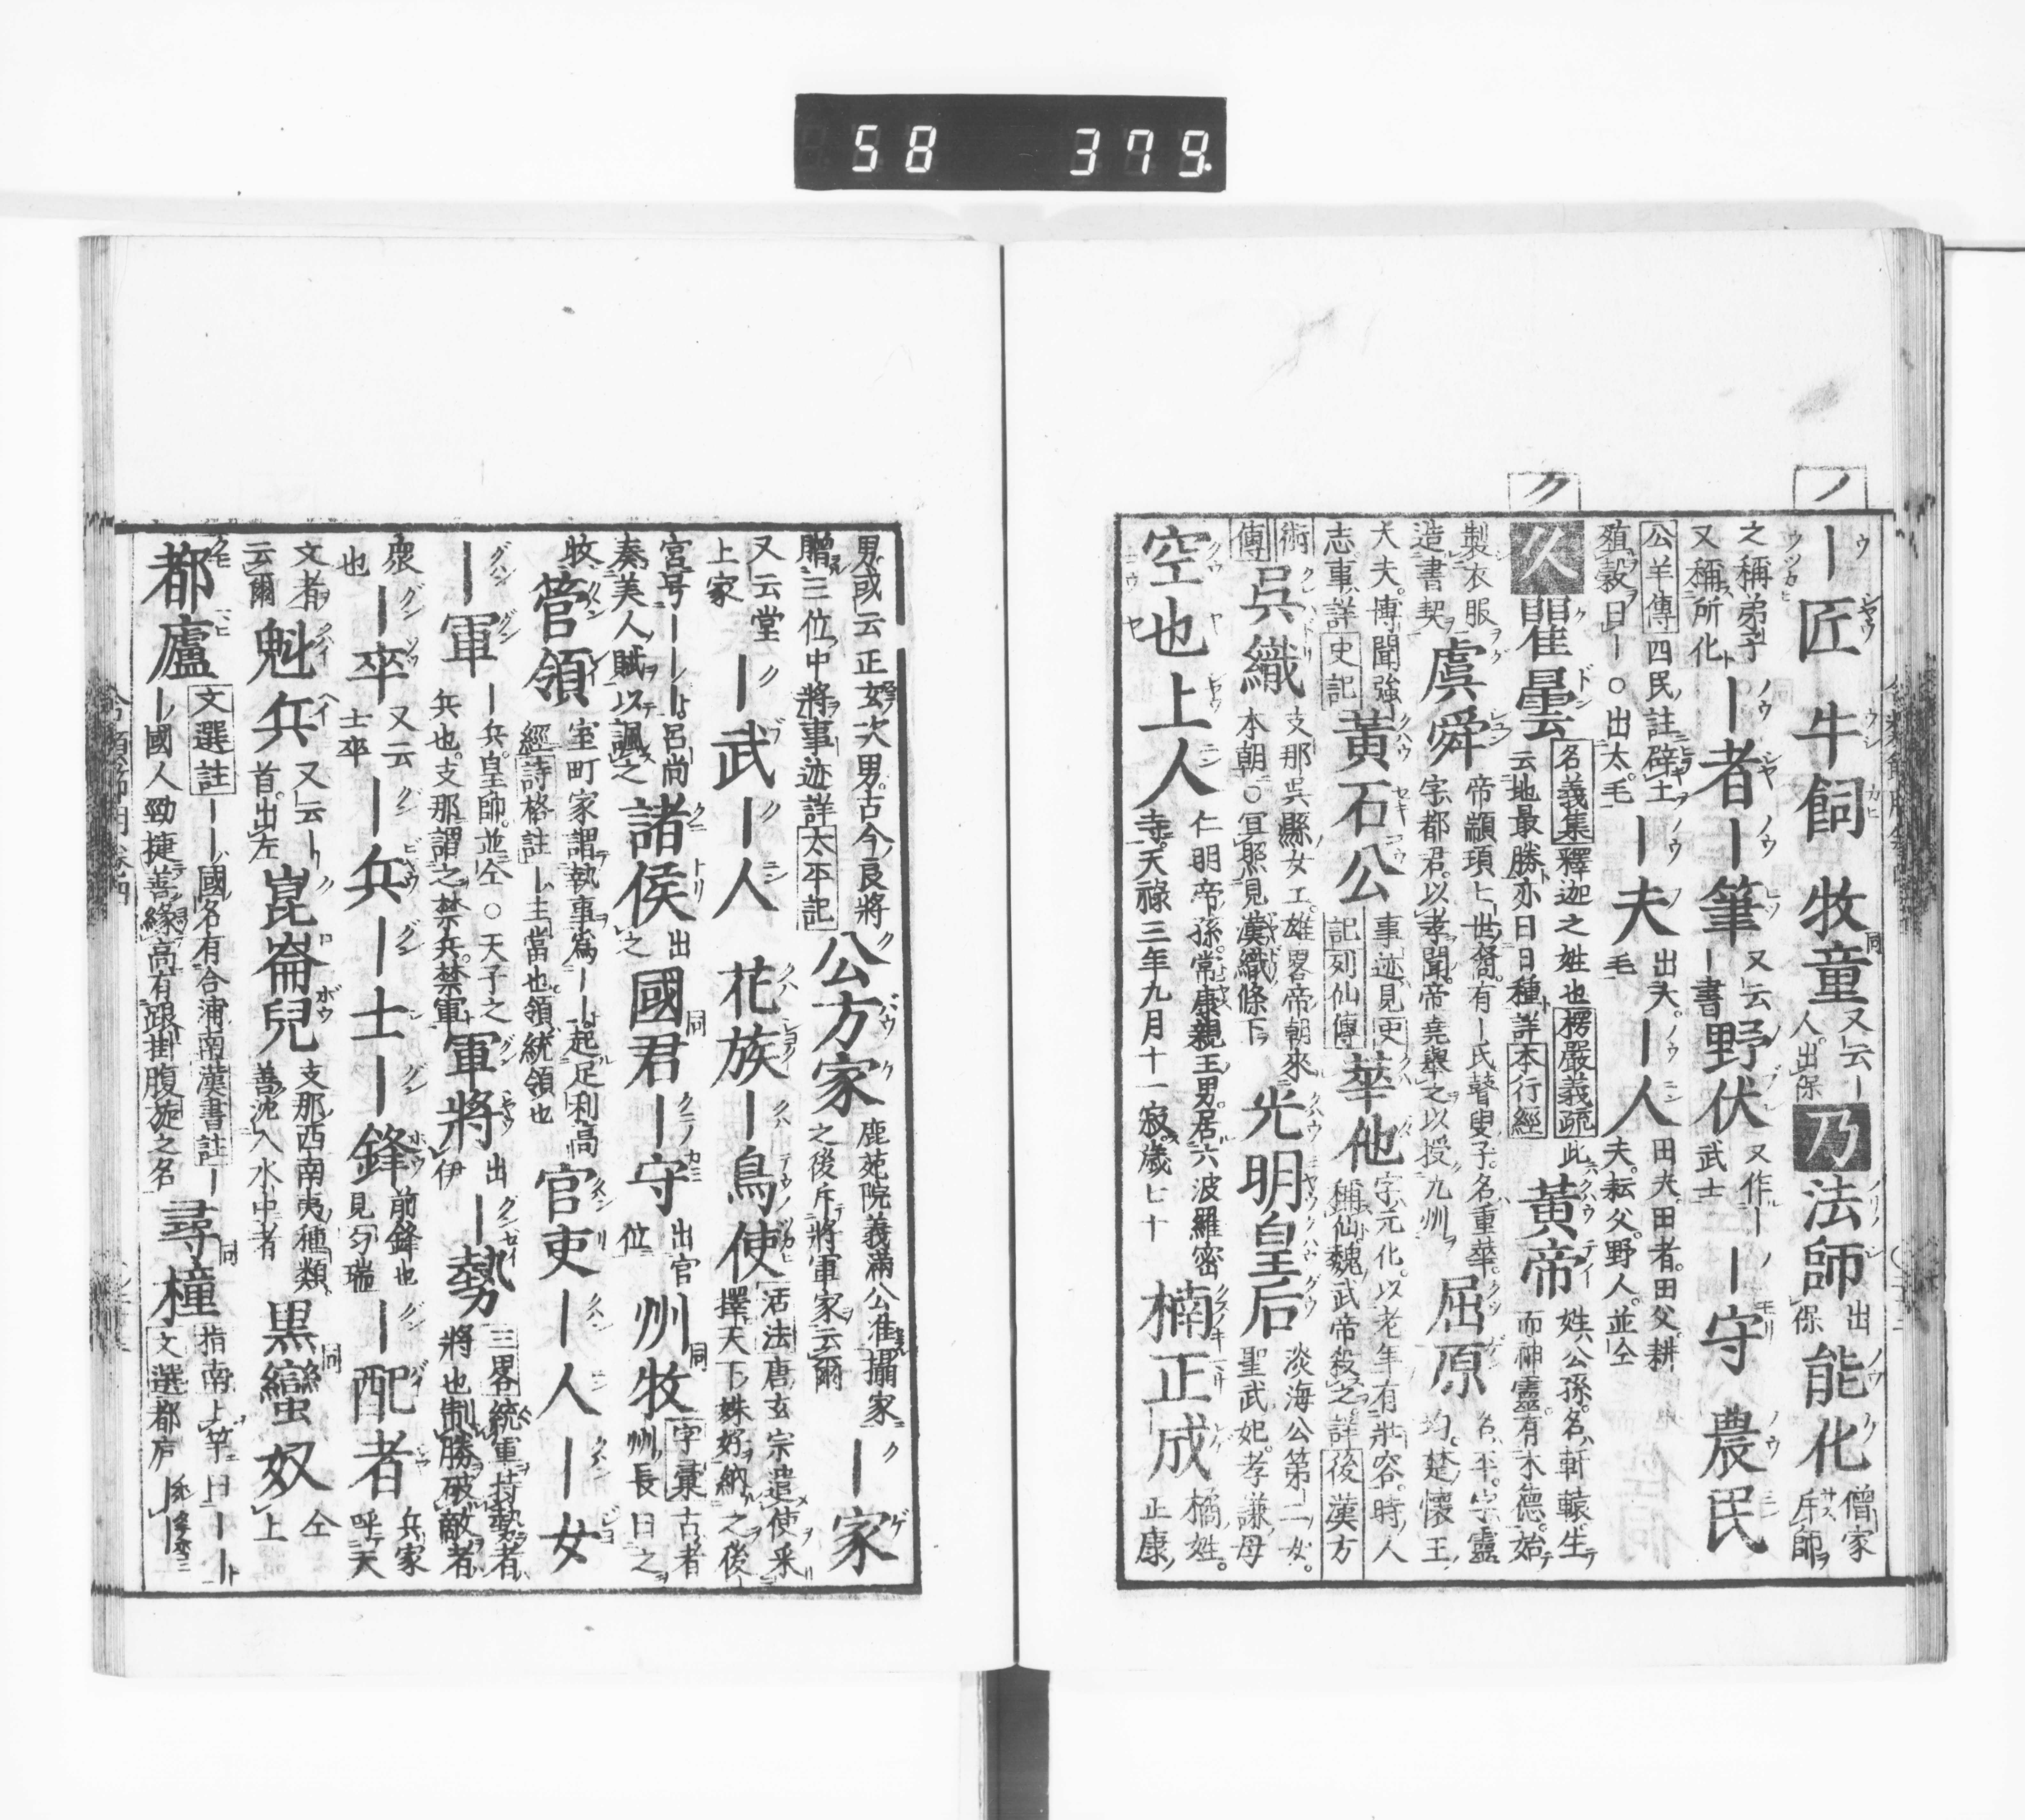 58 379
ノ
ク
｜匠 牛飼 牧童 又云｜人出保 乃 法師 出保 能化 僧家斥師
之稱弟子又稱所化 ｜者 ｜筆 又云｜書 野伏 又作｜武士 ｜守 農民
公羊傳四民註辟土殖穀曰｜○出太毛 ｜夫 出大毛 ｜人 田夫田者田父耕夫耘父野人並仝
久 瞿曇 名義集釋迦之姓也楞嚴義疏此云地最勝亦曰日種詳本行經 黃帝 姓公孫名軒轅生而神靈有木德始
製衣服造書契 虞舜 帝顓頊七世裔有｜氏瞽叟子名重華字都君以孝聞帝堯舉之以授九州 屈原 名平字靈均楚懷王
大夫博聞強志事詳史記 黃石公 事迹見史記列仙傳 華他 字元化以老年有壯容時人稱仙魏武帝殺之詳後漢方
術傳 呉織 支那呉縣女工雄畧帝朝來本朝○冝照見漢織條下 光明皇后 淡海公第二女聖武妃孝謙母
空也上人 仁明帝孫常康親王男居六波羅密寺天祿三年九月十一寂歲七十 楠正成 橘姓正康
男或云正玄次男古今良將贈三位中將事迹詳太平記 公方家 鹿苑院義滿公准攝家之後斥將軍家云爾 ｜家
又云堂上家 ｜武 ｜人 花族 ｜鳥使 活法唐玄宗遣使采擇天下姝好納之後
宮号｜｜呂尚奏美人賦以諷之 諸侯 出之 國君 同 ｜守 出官位 州牧 同 字彙古者州長曰之
牧 管領 室町家謂執事為｜｜起足利高經詩格註｜主當也領統領也 官吏 ｜人 ｜女
｜軍 ｜兵皇師並仝○天子之兵也支那謂之禁兵禁軍 軍將 出伊 ｜勢 三畧統軍持勢者將也制勝破敵者
衆也 ｜卒 又云士卒 ｜兵 ｜士 ｜鋒 前鋒也見匀瑞 ｜配者 兵家呼天
文者云爾 魁兵 又云｜首出左 崑崙兒 支那西南夷種類善沈入水中者 黒蠻奴 仝上
都廬 文選註｜｜國名有合浦南漢書註｜｜國人勁捷善緣高有跟掛腹旋之名 尋橦 同 指南上竿曰｜｜文選都庐